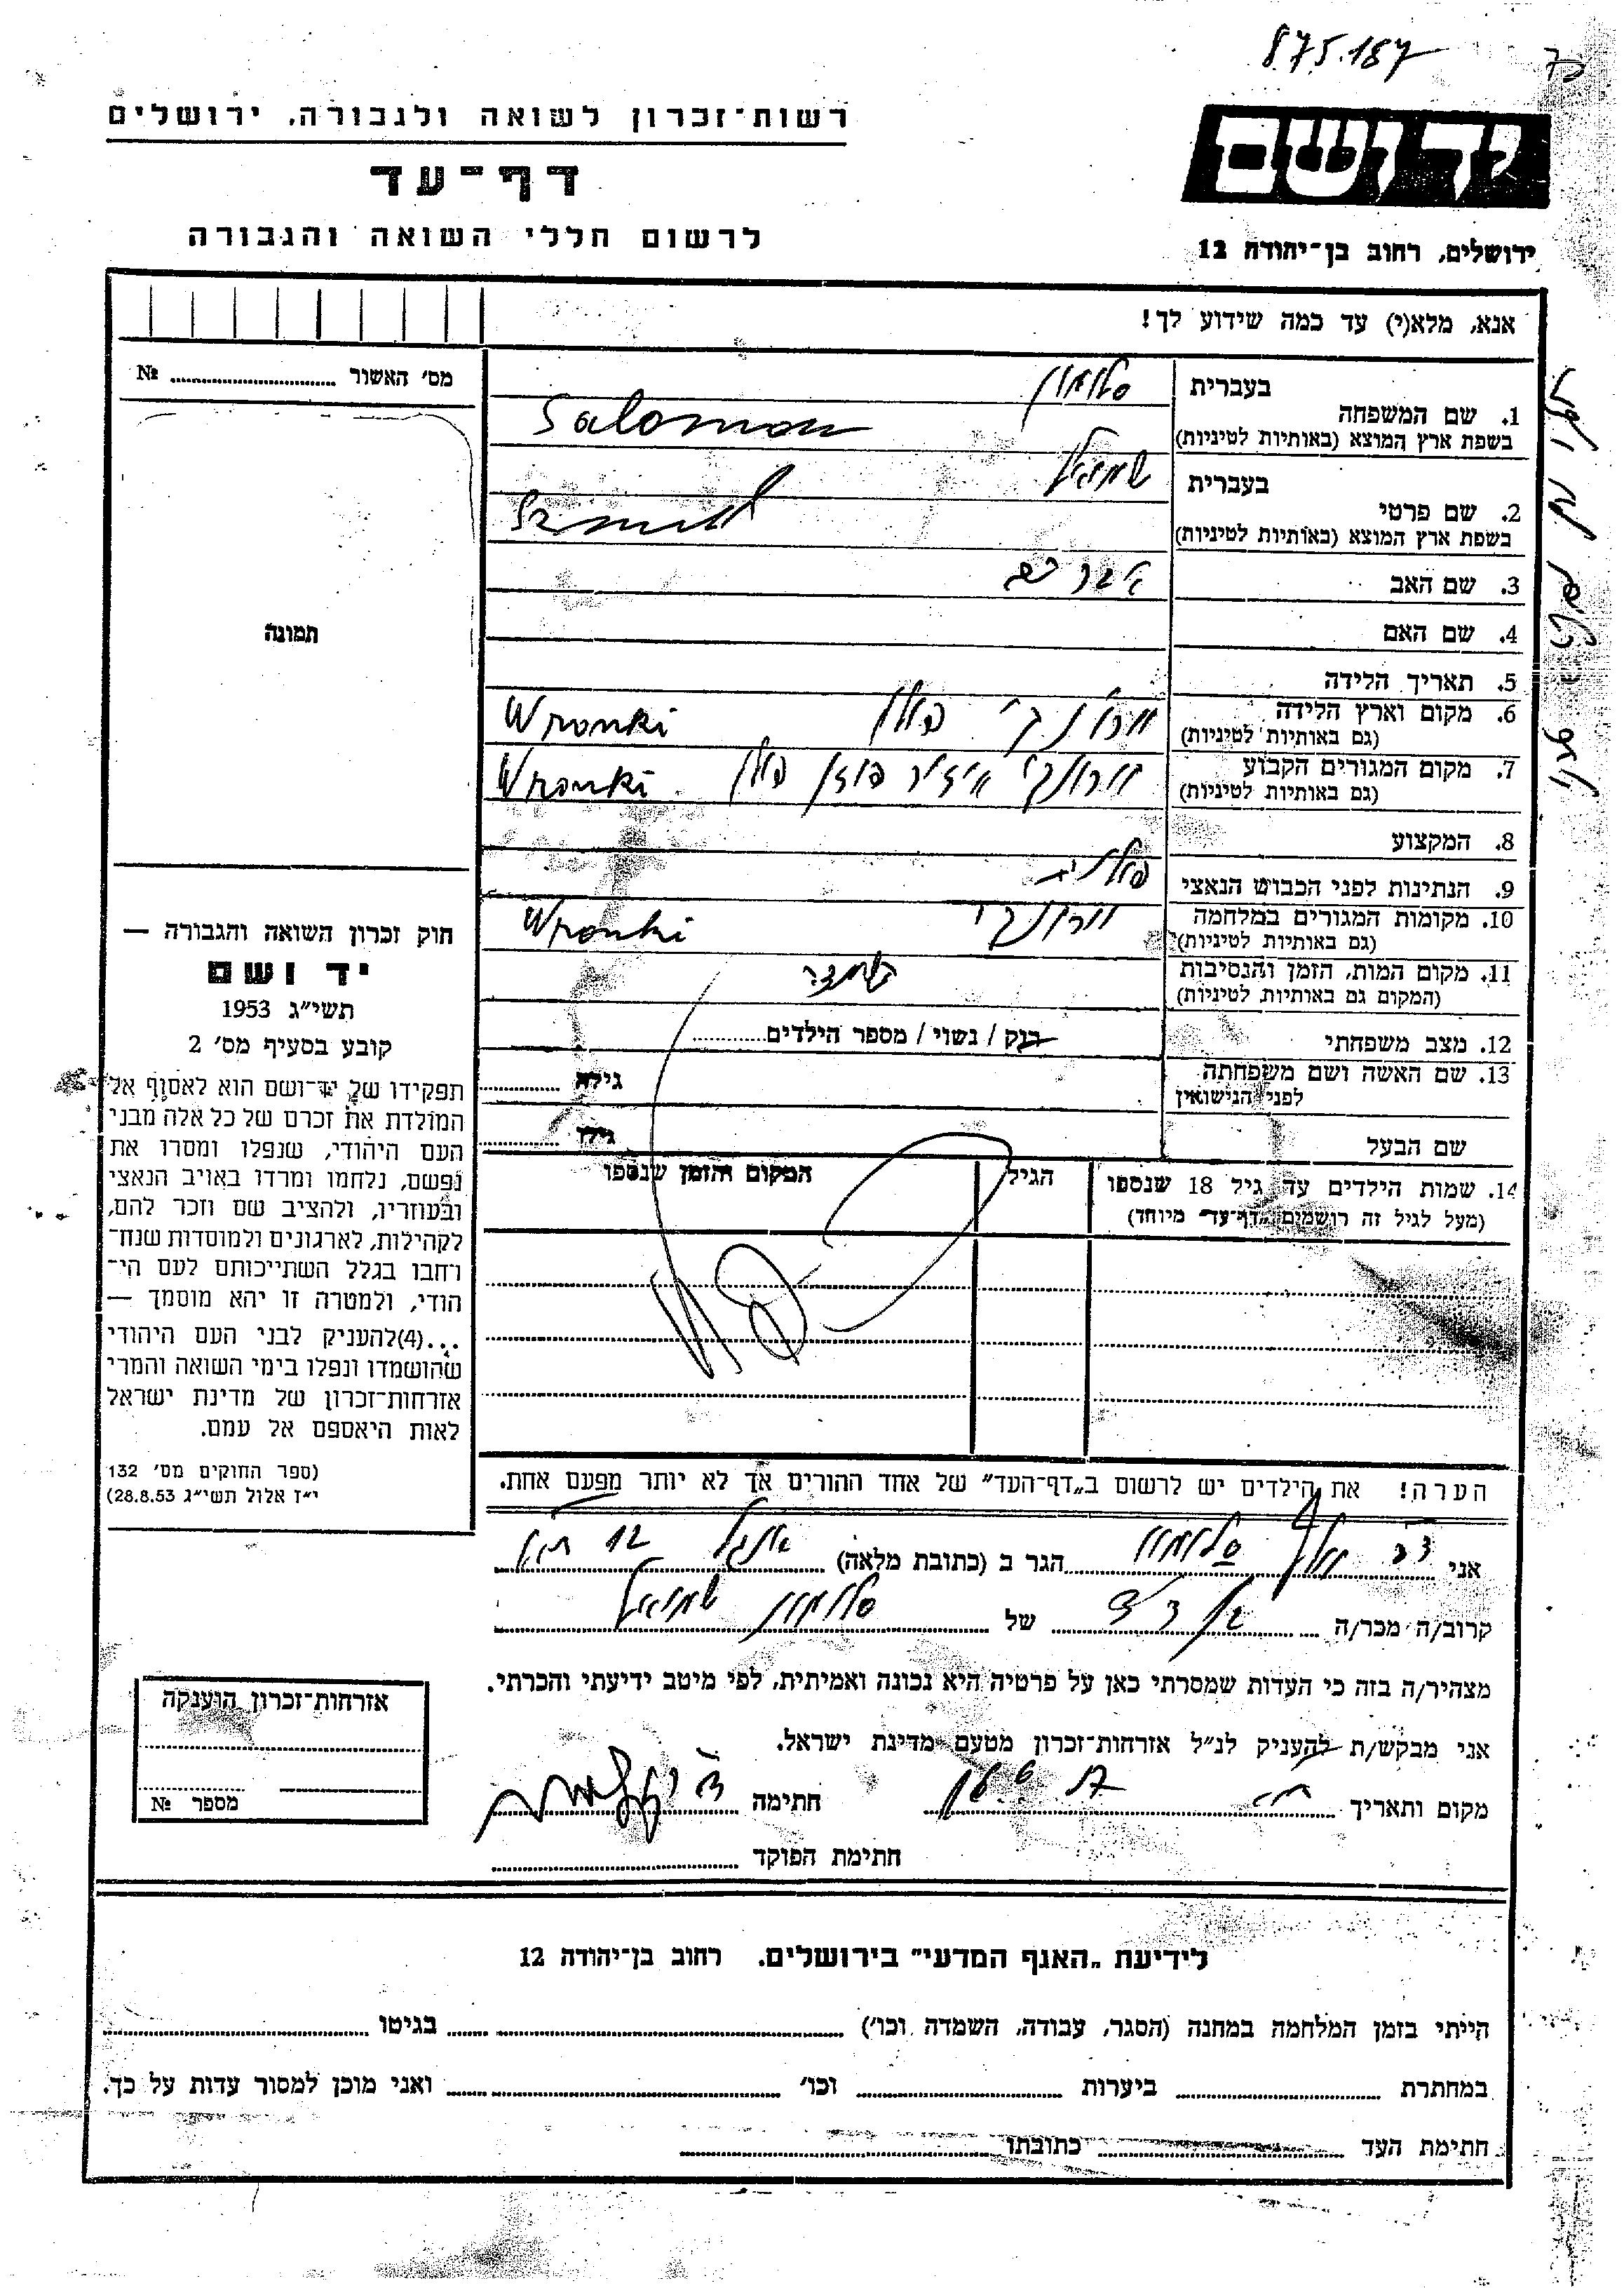 875.187
רשות־זכרון לשואה ולגבורה, ירושלים
דף־עד
לרשום חללי השואה והגבורה
יד ושם
ירושלים, רחוב בן־יהודה 12
אנא, מלא(י) עד כמה שידוע לך!
מס׳ האשור № ........
תמונה
1. שם המשפחה
בעברית סלומון
בשפת ארץ המוצא (באותיות לטיניות) Salomon
2. שם פרטי
בעברית שמואל
בשפת ארץ המוצא (באותיות לטיניות)
3. שם האב אברהם
4. שם האם
5. תאריך הלידה
6. מקום וארץ הלידה וורונקי פולין Wronki
(גם באותיות לטיניות)
7. מקום המגורים הקבוע וורונקי איזור פוזן פולין Wronki
(גם באותיות לטיניות)
8. המקצוע
9. הנתינות לפני הכבוש הנאצי פולנית
10. מקומות המגורים במלחמה וורונקי Wronki
(גם באותיות לטיניות)
11. מקום המות, הזמן והנסיבות
(המקום גם באותיות לטיניות)
12. מצב משפחתי רוק / נשוי / מספר הילדים ........
13. שם האשה ושם משפחתה
לפני הנישואין
גילה ........
שם הבעל גילו ........
14. שמות הילדים עד גיל 18 שנספו
(מעל לגיל זה רושמים „דף־עד” מיוחד)
הגיל
המקום והזמן שנספו
חוק זכרון השואה והגבורה —
יד ושם
תשי״ג 1953
קובע בסעיף מס׳ 2
תפקידו של יד־ושם הוא לאסוף אל
המולדת את זכרם של כל אלה מבני
העם היהודי, שנפלו ומסרו את
נפשם, נלחמו ומרדו באויב הנאצי
ובעוזריו, ולהציב שם וזכר להם,
לקהילות, לארגונים ולמוסדות שנח־
רחבו בגלל השתייכותם לעם הי־
הודי, ולמטרה זו יהא מוסמך —
...(4) להעניק לבני העם היהודי
שהושמדו ונפלו בימי השואה והמרי
אזרחות־זכרון של מדינת ישראל
לאות היאספם אל עמם.
(ספר החוקים מס׳ 132
י״ז אלול תשי״ג 28.8.53)
הערה! את הילדים יש לרשום ב„דף־העד” של אחד ההורים אך לא יותר מפעם אחת.
אני סלומון הגר ב (כתובת מלאה)
קרוב/ה מכר/ה בן דוד של סלומון שמואל
מצהיר/ה בזה כי העדות שמסרתי כאן על פרטיה היא נכונה ואמיתית, לפי מיטב ידיעתי והכרתי.
אני מבקש/ת להעניק לנ״ל אזרחות־זכרון מטעם מדינת ישראל.
מקום ותאריך
חתימה
חתימת הפוקד ........
אזרחות־זכרון הוענקה
מספר №
לידיעת „האגף המדעי” בירושלים. רחוב בן־יהודה 12
הייתי בזמן המלחמה במחנה (הסגר, עבודה, השמדה וכו׳) ........ בגיטו ........
במחתרת ........ ביערות ........ וכו׳ ........ ואני מוכן למסור עדות על כך.
חתימת העד ........ כתובתו ........